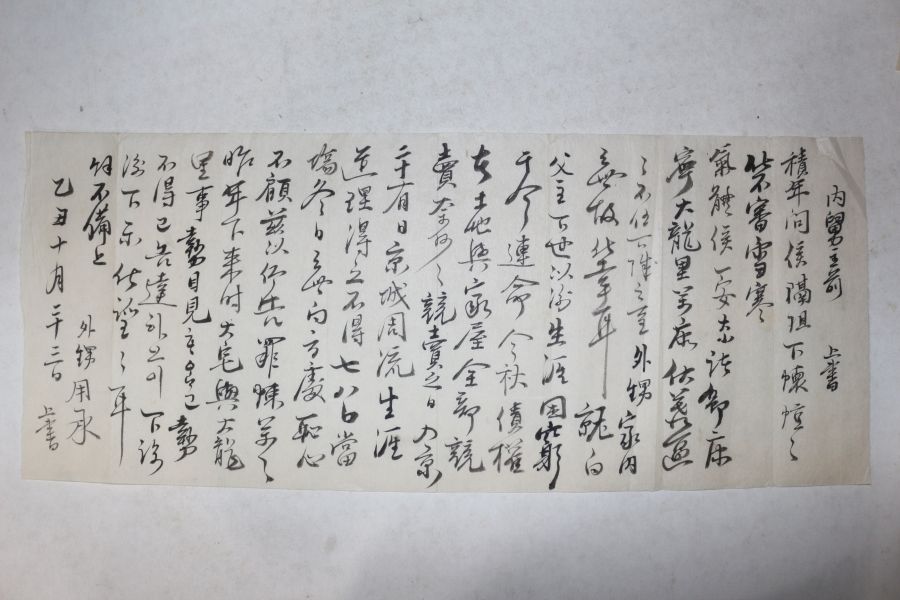 內舅主前 上書
積年問候隔阻下懷悵〻
伏不審雪寒
氣體候一安 大小諸節一床
寧大龍里 伏慕區
〻不任下誠之至外甥家內
無故伏幸耳 就白
父主下世以後生涯困窮
于今連命今秋債權
者土地與家屋全部競
賣奈何〻競賣之日力京
二十有日京城周流生涯
道理得之不得七八日當
嚴冬日無向方處 恥心
不顧玆以仰告罪悚萬〻
昨年下來時大宅與大龍
里事勢目見 事勢
不得已告達 下諒
後下示伏望〻耳
餘不備上
乙丑十月二十三日 外甥用承 上書